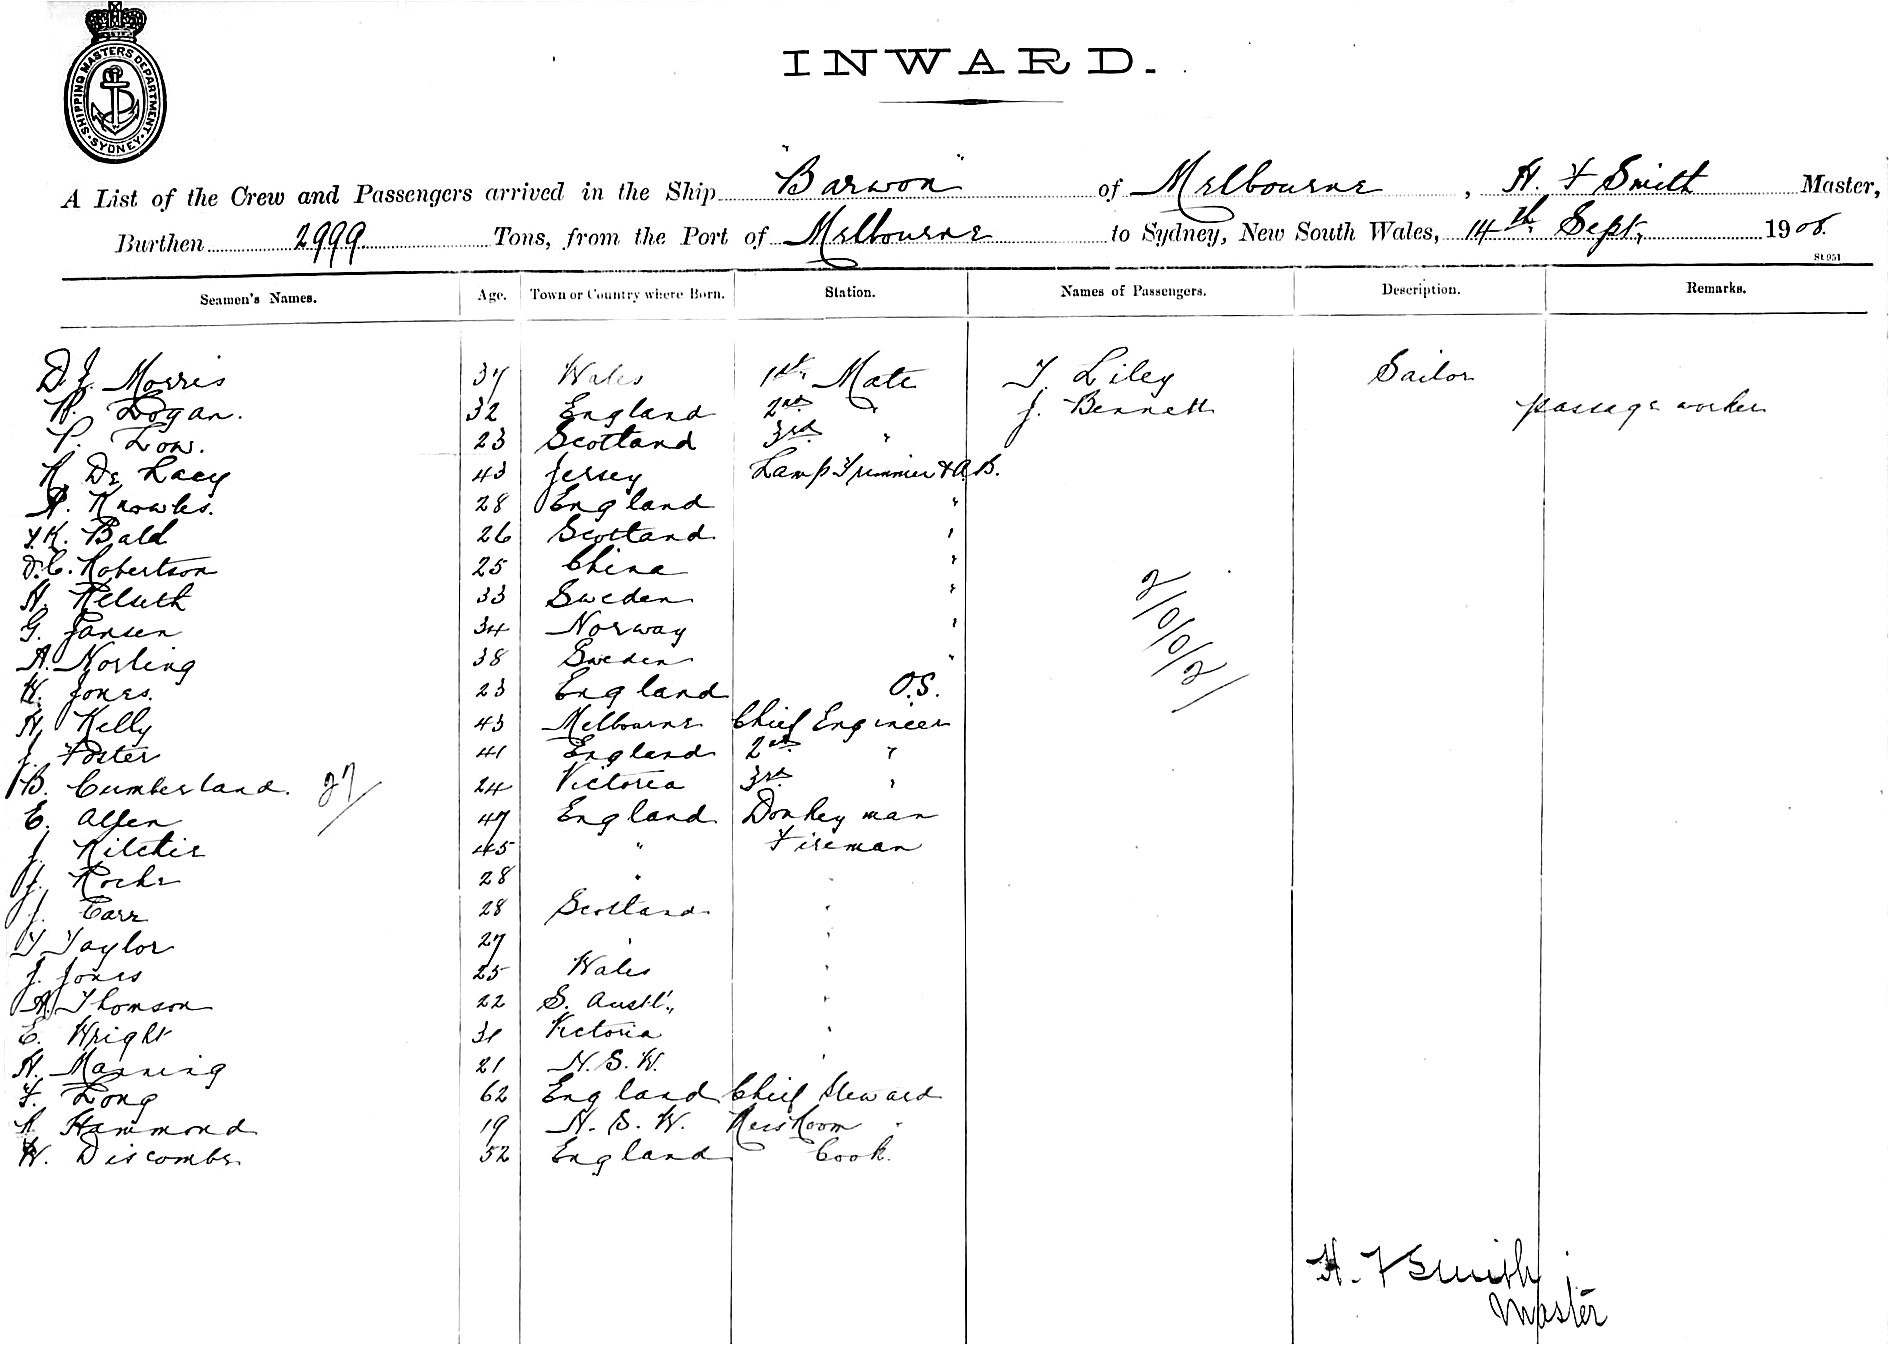 SHIPPING MASTERS DEPARTMENT
SYDNEY
INWARD.
A List of the Crew and Passengers arrived in the Ship "Barwon" of Melbourne, H. F Smith Master,
Burthen 2999 Tons, from the Port of Melbourne to Sydney, New South Wales, 14th Sept, 1908.
St 951
Seamen's Names. Age. Town or Country where Born. Station. Names of Passengers. Description. Remarks.
D. J. Morris 37 Wales 1st Mate T. Liley Sailor
Logan. 32 England 2nd " J. Bennett passage worker
Low. 23 Scotland 3rd "
De Lacy 43 Jersey Lamp Trimmer & A.B.
Knowles. 28 England "
Bald 26 Scotland "
Robertson 25 China "
33 Sweden "
G. Jansen 34 Norway "
A. Norling 38 Sweden "
W. Jones. 23 England O.S.
H. Kelly 43 Melbourne Chief Engineer
J. Foster 41 England 2nd "
B. Cumberland. 27/ 24 Victoria 3rd "
E. Allen 47 England Donkeyman
J. 45 " Fireman
J. Roche 28 " "
J. Carr 28 Scotland "
T Taylor 27 " "
J. Jones 25 Wales "
A. Thomson 22 S. Austl., "
E. Wright 31 Victoria "
H. Manning 21 N. S. W. "
F. Long 62 England Chief Steward
Hammond 19 N. S. W. "
W. Discombe 52 England Cook.
2/0/0/2/
H. F Smith
Master